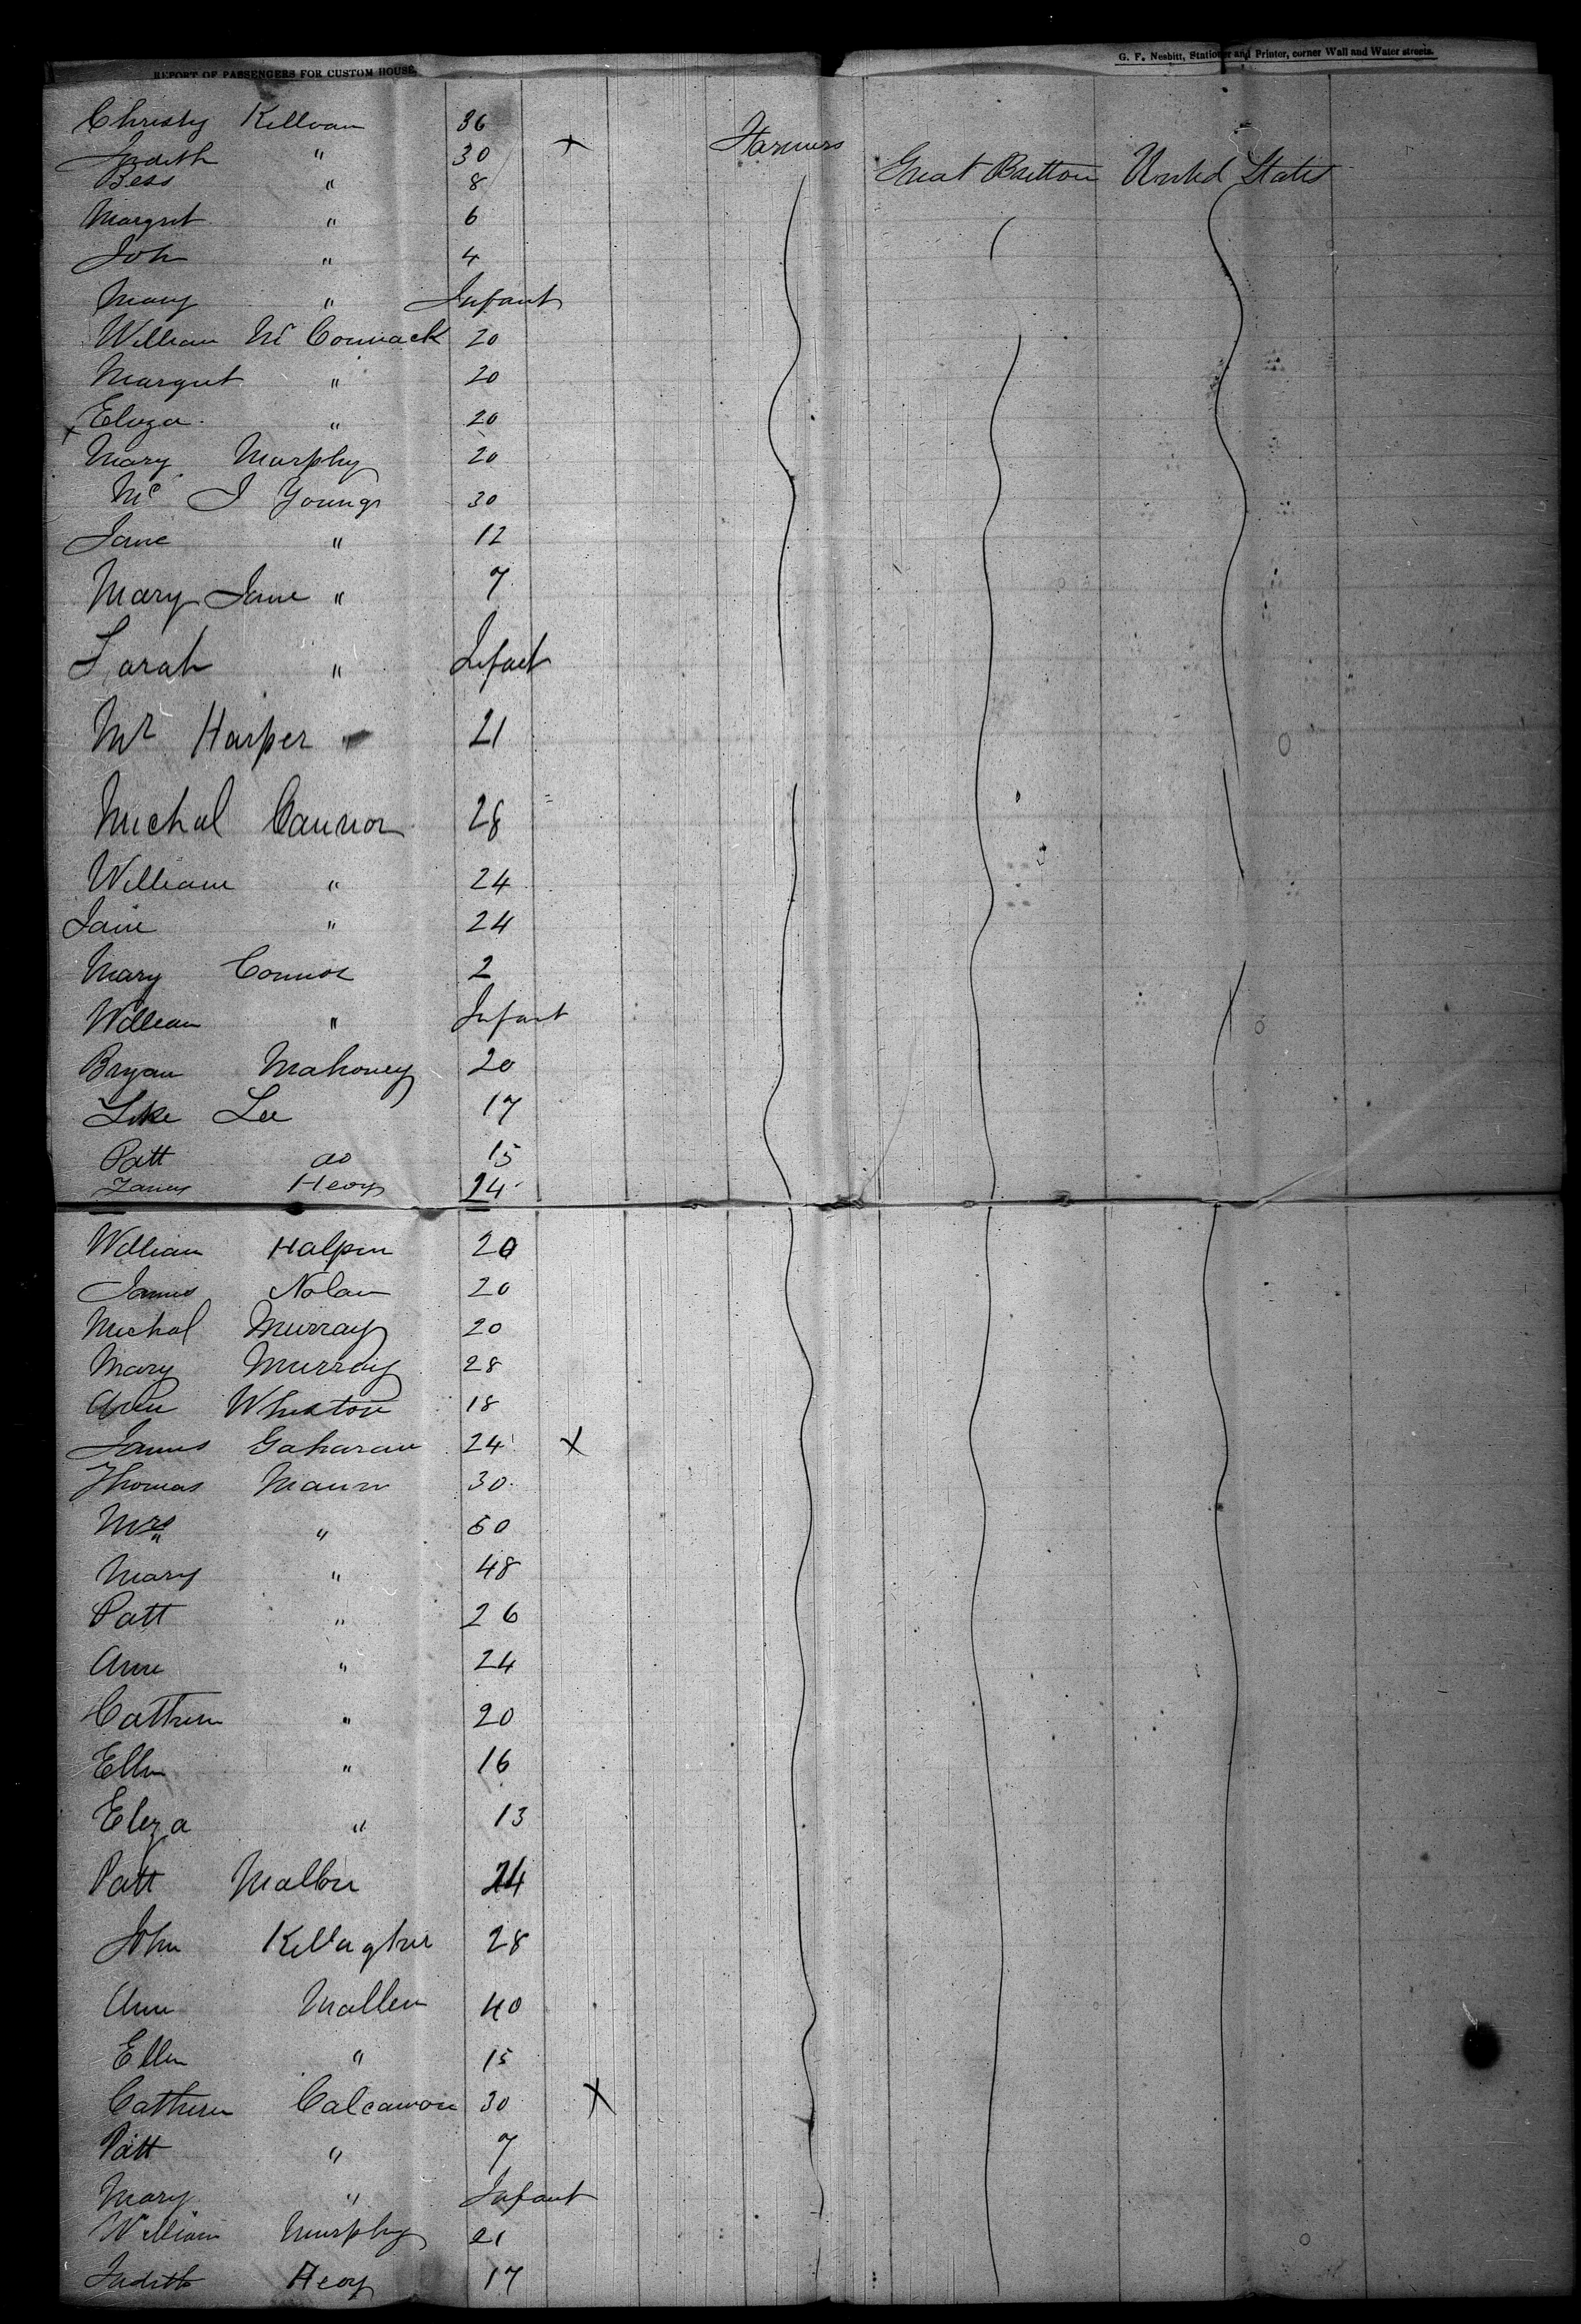 REPORT OF PASSENGERS FOR CUSTOM HOUSE.
G. F. Nesbitt, Stationer and Printer, corner Wall and Water streets.
Christy Killvan 36
Judith " 30 x Farmers
Bess " 8 Great Britton United States
Margret " 6
John " 4
Mary " Infant
William Mc Cormack 20
Margret " 20
x Eliza " 20
Mary Murphy 20
J Youngs 30
Jane " 12
Mary Jane " 7
Sarah " Infant
Mr Harper 21
Michal Cannon 28
William " 24
Jane " 24
Mary Connor 2
William " Infant
Bryan Mahoney 20
Like Lee 17
Patt do 15
James Heoy 24
William Halpin 20
James Nolan 20
Michal Murray 20
Mary Murray 28
Ann Whiston 18
James Gaharan 24 x
Thomas Mann 30
Mrs " 50
Mary " 48
Patt " 26
Ann " 24
Cathren " 20
Ellen " 16
Eliza " 13
Patt Mallon 24
John Kellagher 28
Ann Mallen 40
Ellen " 15
Cathren Calcawon 30 x
Patt " 7
Mary " Infant
William Murphy 21
Judith Heoy 17